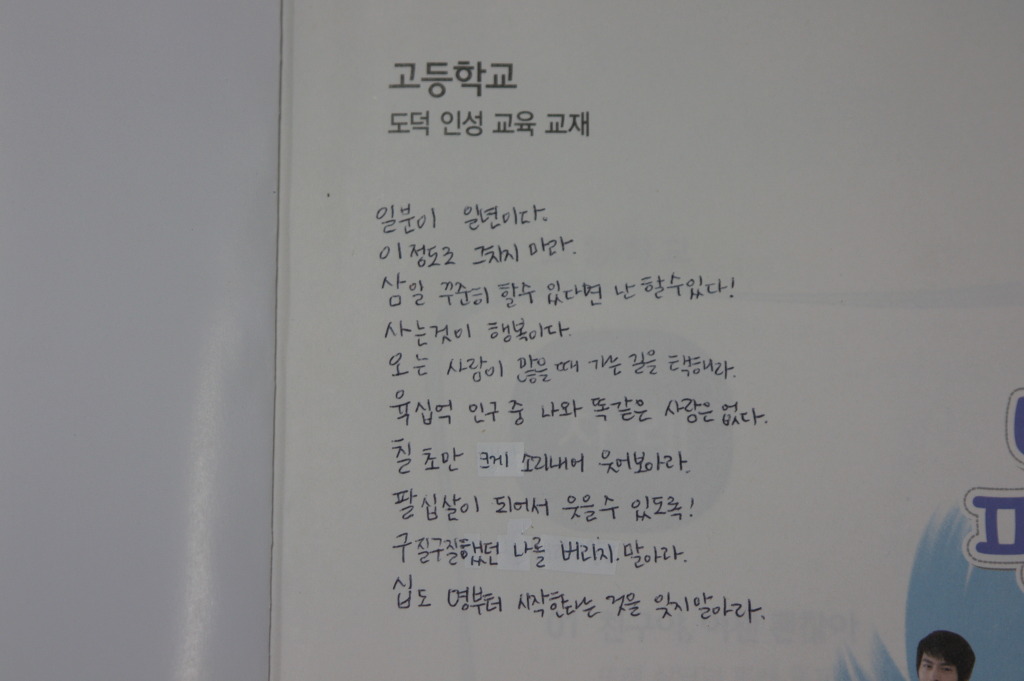 고등학교
도덕 인성 교육 교재
일분이 일년이다.
이정도로 그치지 마라.
삼일 꾸준히 할수 있다면 난 할수있다!
사는것이 행복이다.
오는 사람이 많을때 가는 길을 택해라.
육십억 인구 중 나와 똑같은 사람은 없다.
칠 초만 크게 소리내어 웃어보아라.
팔십살이 되어서 웃을수 있도록!
구질구질했던 나를 버리지.말아라.
십도 명부터 시작한다는 것을 잊지말아라.